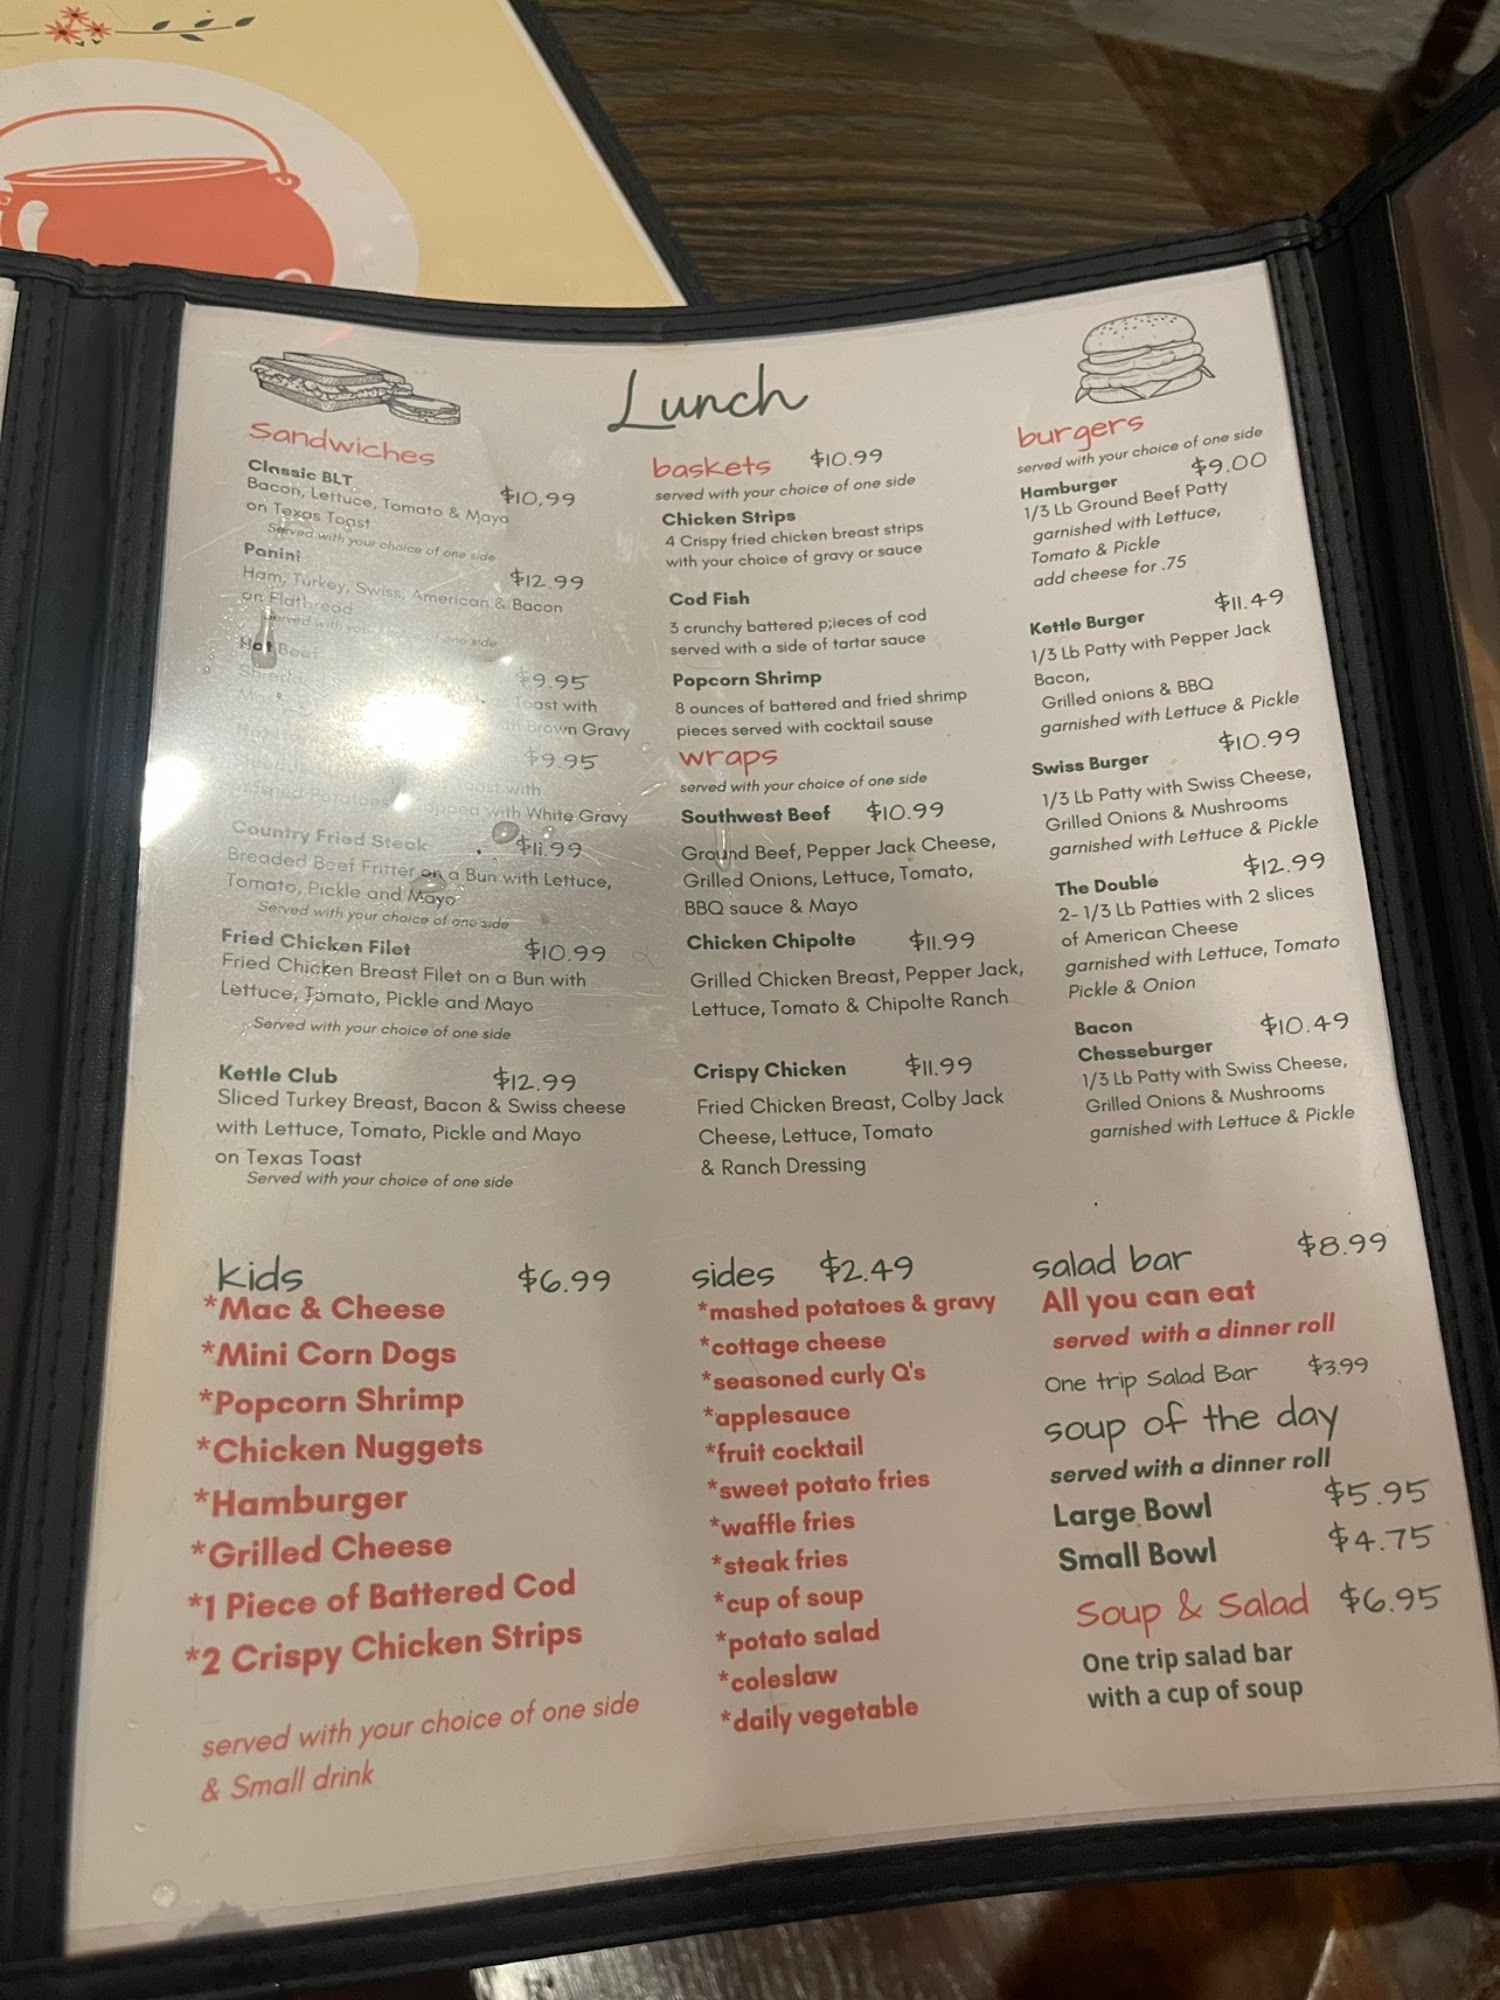 Lunch
Sandwiches
Classic BLT
$10.99
Bacon, Lettuce, Tomato & Mayo
on Texas Toast
Served with your choice of one side
Panini
$12.99
Ham, Turkey, Swiss, American & Bacon
on Flatbread
Served with your of one side
Hot Beef
$9.95
Shredded Toast with
Brown Gravy
$9.95
Shredded Toast with
Mashed Potatoes topped with White Gravy
Country Fried Steak
$11.99
Breaded Beef Fritter on a Bun with Lettuce,
Tomato, Pickle and Mayo
Served with your choice of one side
Fried Chicken Filet
$10.99
Fried Chicken Breast Filet on a Bun with
Lettuce, Tomato, Pickle and Mayo
Served with your choice of one side
Kettle Club
$12.99
Sliced Turkey Breast, Bacon & Swiss cheese
with Lettuce, Tomato, Pickle and Mayo
on Texas Toast
Served with your choice of one side
baskets $10.99
served with your choice of one side
Chicken Strips
4 Crispy fried chicken breast strips
with your choice of gravy or sauce
Cod Fish
3 crunchy battered p;ieces of cod
served with a side of tartar sauce
Popcorn Shrimp
8 ounces of battered and fried shrimp
pieces served with cocktail sause
wraps
served with your choice of one side
Southwest Beef $10.99
Ground Beef, Pepper Jack Cheese,
Grilled Onions, Lettuce, Tomato,
BBQ sauce & Mayo
Chicken Chipolte $11.99
Grilled Chicken Breast, Pepper Jack,
Lettuce, Tomato & Chipolte Ranch
Crispy Chicken $11.99
Fried Chicken Breast, Colby Jack
Cheese, Lettuce, Tomato
& Ranch Dressing
burgers
served with your choice of one side
$9.00
Hamburger
1/3 Lb Ground Beef Patty
garnished with Lettuce,
Tomato & Pickle
add cheese for .75
$11.49
Kettle Burger
1/3 Lb Patty with Pepper Jack
Bacon,
Grilled onions & BBQ
garnished with Lettuce & Pickle
$10.99
Swiss Burger
1/3 Lb Patty with Swiss Cheese,
Grilled Onions & Mushrooms
garnished with Lettuce & Pickle
$12.99
The Double
2- 1/3 Lb Patties with 2 slices
of American Cheese
garnished with Lettuce, Tomato
Pickle & Onion
Bacon $10.49
Chesseburger
1/3 Lb Patty with Swiss Cheese,
Grilled Onions & Mushrooms
garnished with Lettuce & Pickle
kids $6.99
*Mac & Cheese
*Mini Corn Dogs
*Popcorn Shrimp
*Chicken Nuggets
*Hamburger
*Grilled Cheese
*1 Piece of Battered Cod
*2 Crispy Chicken Strips
served with your choice of one side
& Small drink
sides $2.49
*mashed potatoes & gravy
*cottage cheese
*seasoned curly Q's
*applesauce
*fruit cocktail
*sweet potato fries
*waffle fries
*steak fries
*cup of soup
*potato salad
*coleslaw
*daily vegetable
salad bar $8.99
All you can eat
served with a dinner roll
One trip Salad Bar $3.99
soup of the day
served with a dinner roll
Large Bowl $5.95
Small Bowl $4.75
Soup & Salad $6.95
One trip salad bar
with a cup of soup